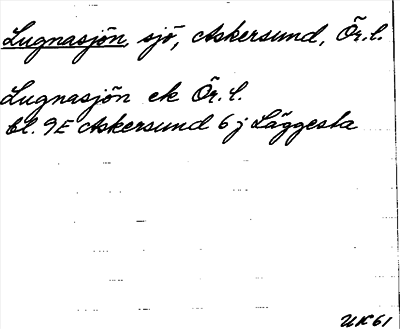 Lugnasjön, sjö, Askersund, Ör. l.
Lugnasjön ek Ör. l.
bl. 9E Askersund 6 j Läggesta
UK61